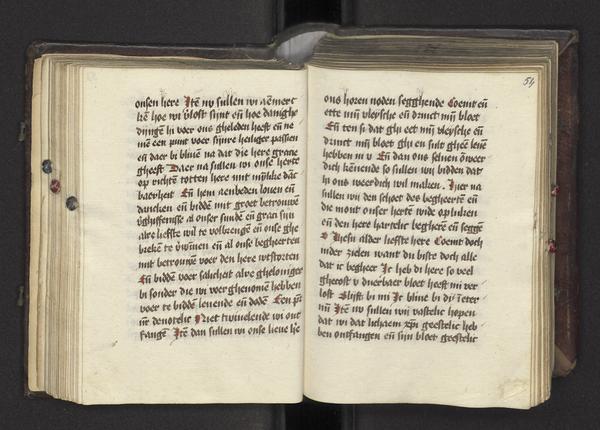 onsen here Itē nv sullen wi aēmerct
kē hoe wi v̄lost sijnt eñ hoe danighe
dinghē hi voer ons gheleden heeft eñ ne
mē een punt voer sijnre heiliger passien
en daer bi bliuē na dat die here gracie
gheeft Daer na sullen wi onse herte
op richtē totten here mit ynlike dāc
baerheit Eñ hem aenbeden louen eñ
dancken eñ biddē mit groet betrouwē
v̄ghiffenisse al onser sundē eñ gracī sijn
alre liefste wil te volbrengē eñ onse ghe
brekē te v̄wīnen eñ al onse begheerten
mit betrouwē voer den here wtstorten
Eñ biddē voer salicheit alre gheloniger
bi sonder die wi voer ghenomē hebben
voer te biddē leuende eñ dodē Een p̄t
Niet twiuelende wi ont
fangē Itē dan sullen wi onse lieue hē
54
ons horen noden segghende Coemt eñ
ette mij vleysche eñ drinct mij bloet
Eñ ten si dat ghi eet mij vleysche eñ
drinct mij bloet ghi en sult gheē leuē
hebben in v Eñ dan ons seluen ōweer
dich kēnende so sullen wi bidden dat
hi ons weerdich wil maken. Hier na
sullen wi den schoet des begheertē eñ
die mont onser hertē wide op luken
eñ den here hartelic begherē eñ seggē
O Ihesu alder liefste here Coemt doch
ieder zielen want du biste doch alle
dat ic begheer Ic heb di here so veel
ghecost v duerbaer bloet heeft mi ver
lost Blijft bi mi Ic bliue bi di
Itē nv sullen wij vastelic hopen
dat wi dat lichaem xp̄i geestelic heb
ben ontfangen eñ sijn bloet geestelic